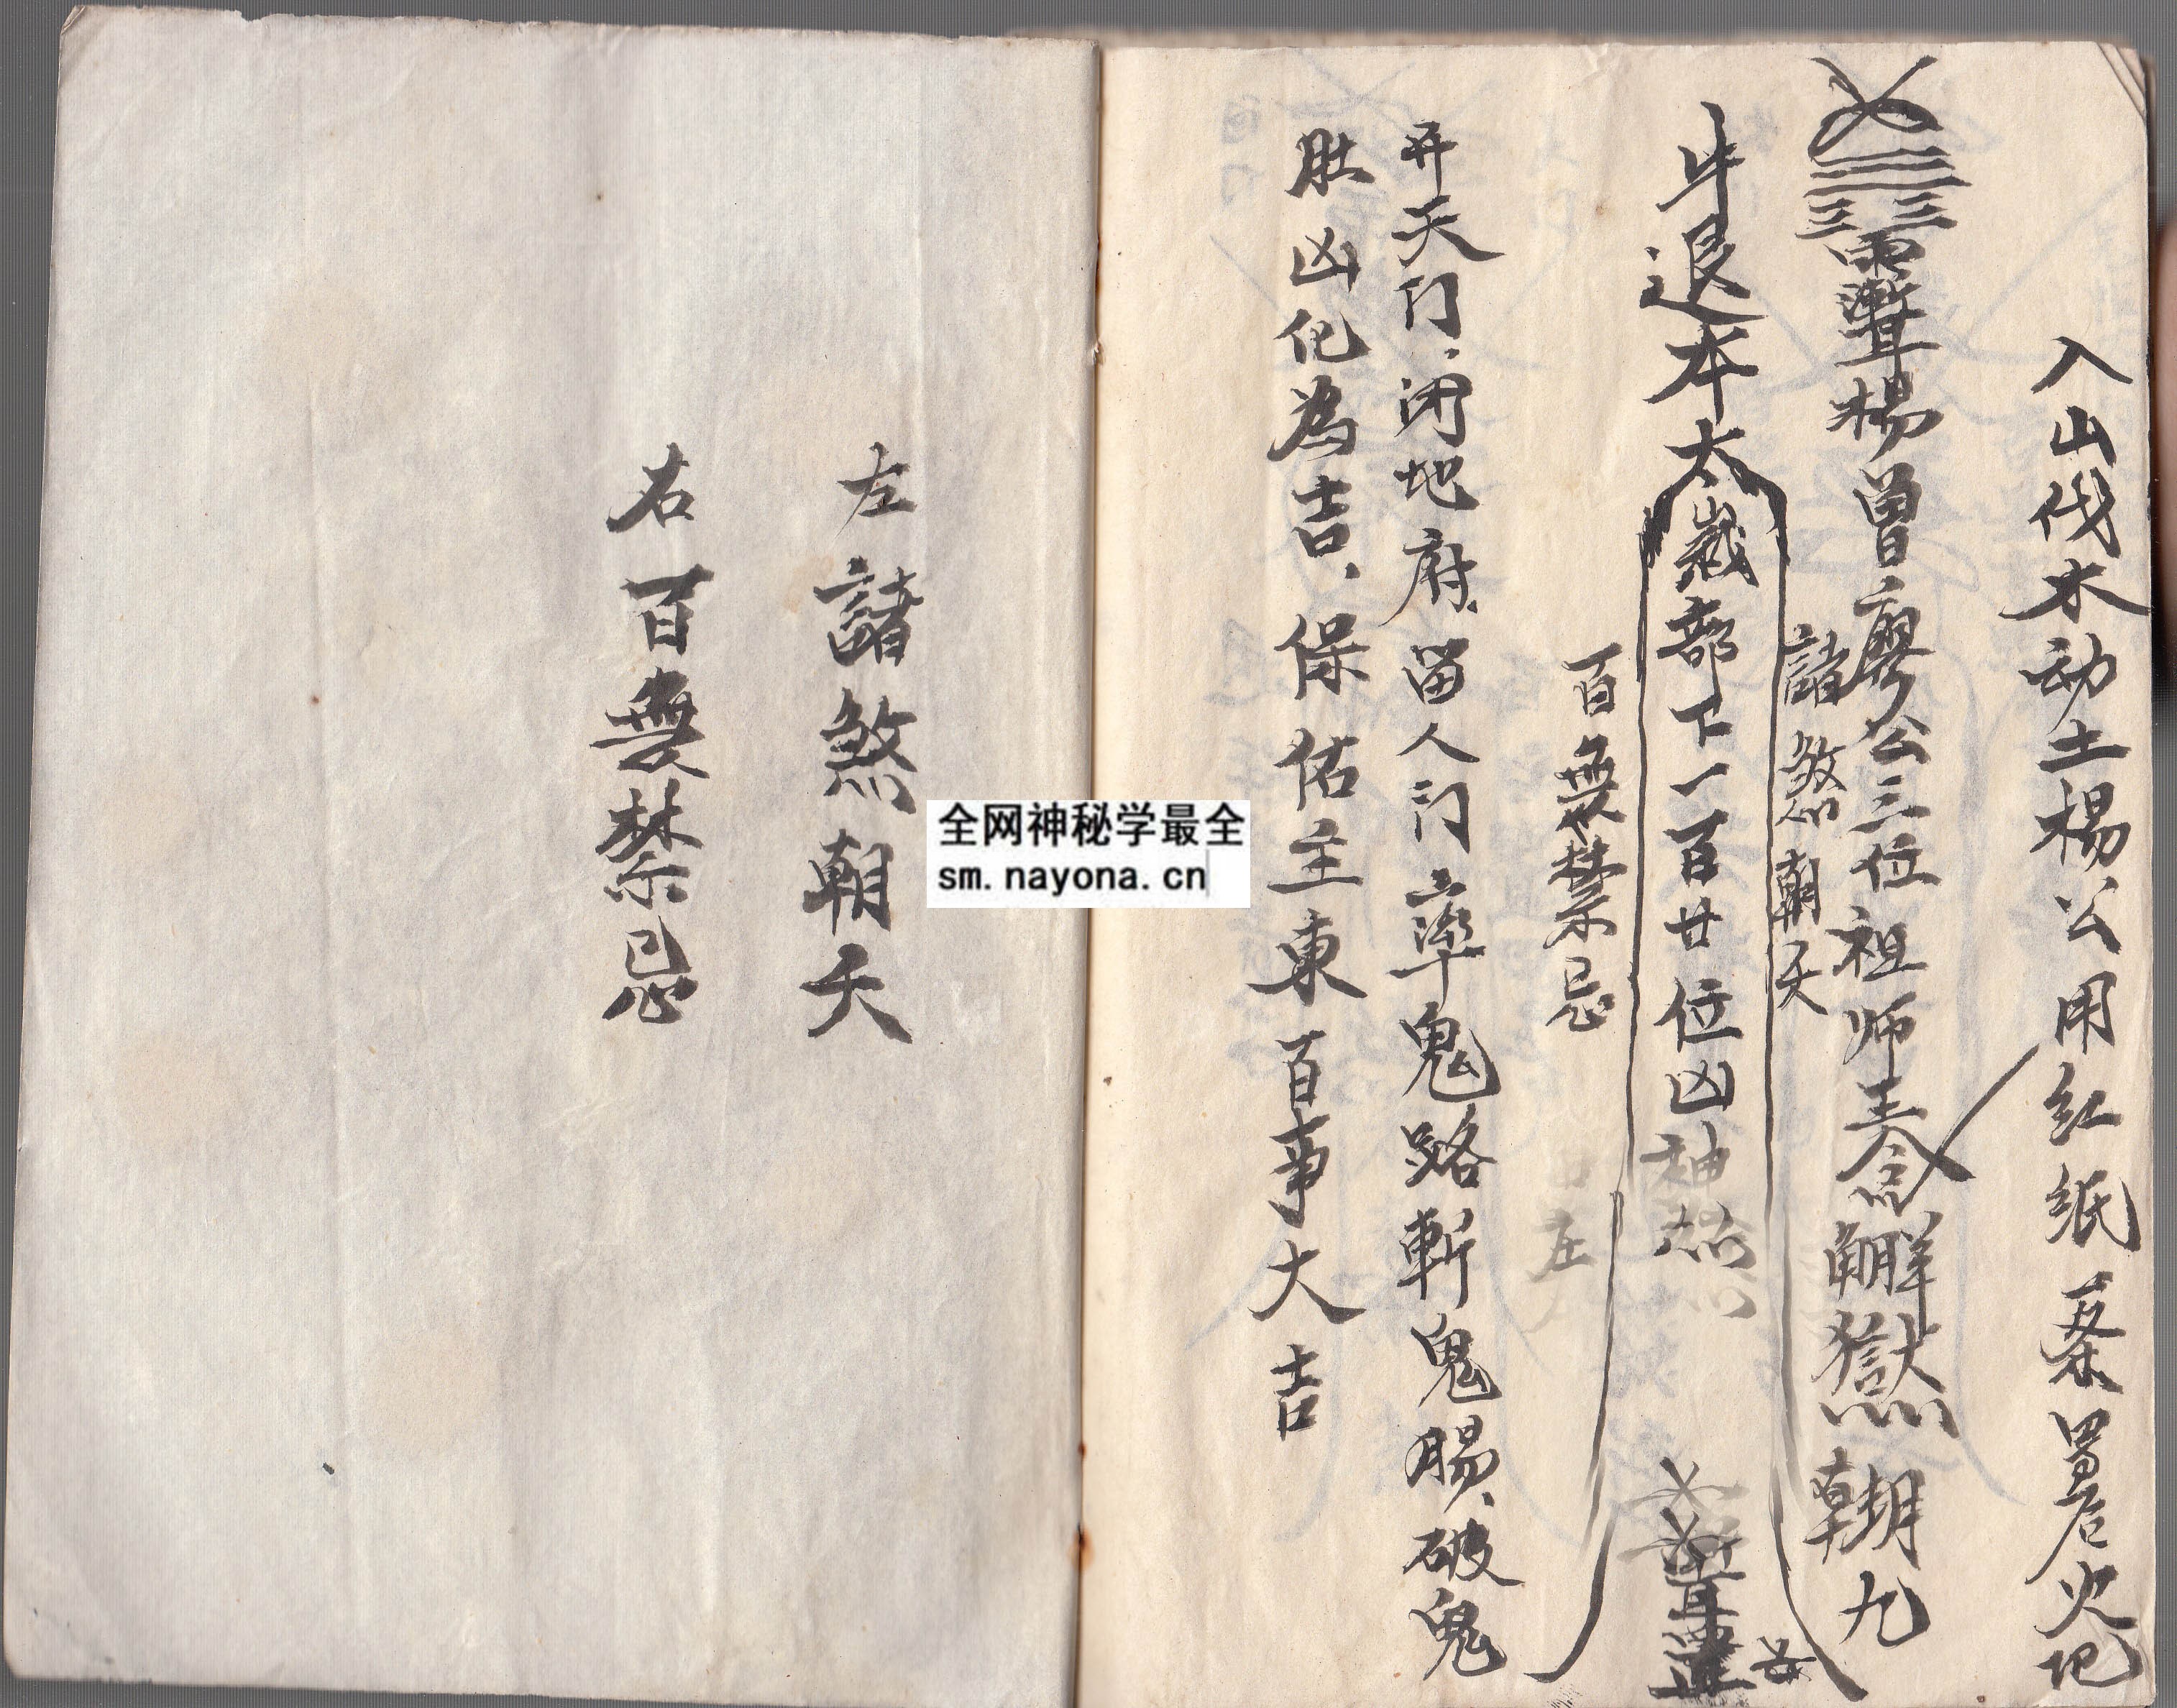 入山伐木动土楊公用红纸一条置居火地
楊曾廖公三位祖师
九
諸煞朝天
牛退本太歲部下一百廿位凶神煞
百無禁忌
开天门、闭地府、留人门、塞鬼路、斬鬼腸、破鬼
肚、凶化為吉、保佑主東百事大吉
左 諸煞朝天
右 百無禁忌
全网神秘学最全
sm.nayona.cn